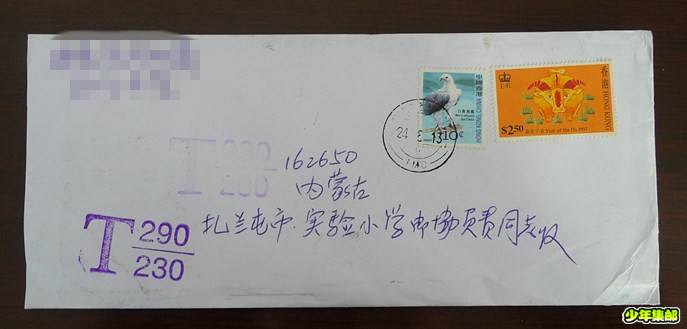 中國香港 HONG KONG, CHINA
白腹海鵰
10¢
香港 HONG KONG
$2.50
歲次丁丑 Year of the Ox 1997
24
13
T 290
230
162650
内蒙古
扎兰屯市·实验小学邮协负责同志收
T 290
230
少年集邮